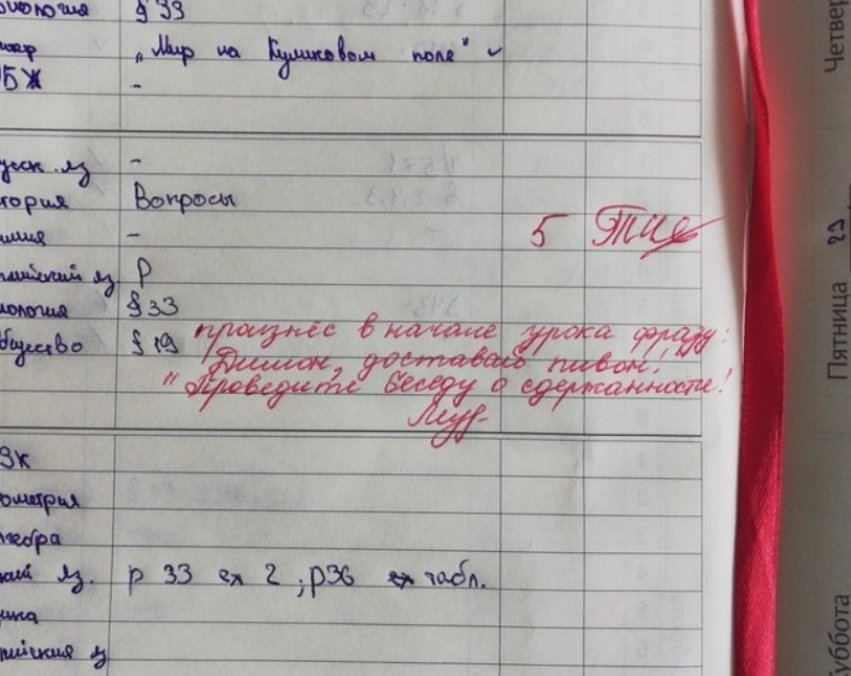 ология § 33
"Мир на Куликовом поле"
БЖ -
русск. яз -
тория Вопросы
имия -
5
яз P
ология § 33
общество § 19
произнёс в начале урока фразу:
"Димон, доставай пивон!"
Проведите беседу о сдержанности!
ЗК
ометрия
лгебра
яз. p 33 ex 2 ; p36 табл.
Четвер
Пятница 29
Суббота